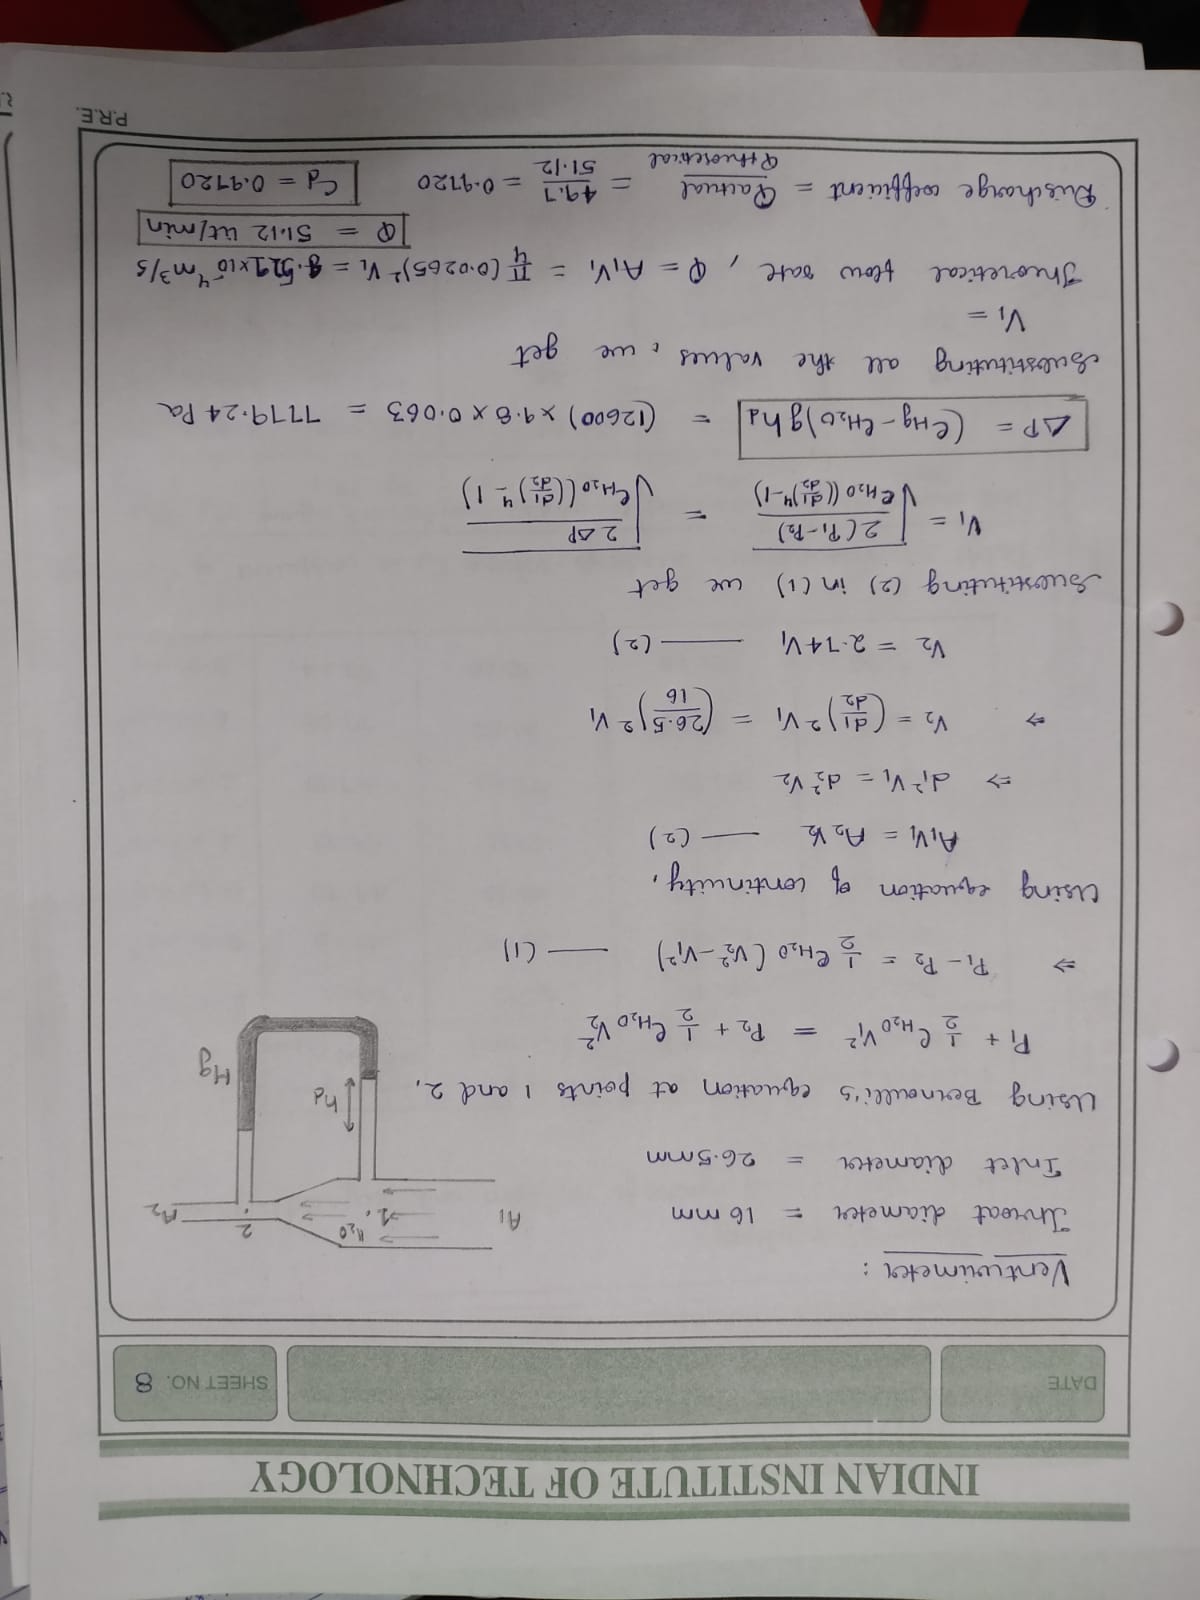 INDIAN INSTITUTE OF TECHNOLOGY
DATE
SHEET NO. 8
Venturimeter :
Throat diameter = 16 mm
Inlet diameter = 26.5mm
A1 H2O 1. 2 A2
hd
Hg
Using Bernoulli's equation at points 1 and 2,
P1 + 1/2 ρH2O V1² = P2 + 1/2 ρH2O V2²
⇒ P1 - P2 = 1/2 ρH2O (V2² - V1²) —— (1)
Using equation of continuity,
A1V1 = A2V2 —— (2)
⇒ d1² V1 = d2² V2
⇒ V2 = (d1/d2)² V1 = (26.5/16)² V1
V2 = 2.74V1 —— (2)
Substituting (2) in (1) we get
V1 = √(2(P1-P2) / ρH2O((d1/d2)⁴-1)) = √(2ΔP / ρH2O((d1/d2)⁴-1))
ΔP = (ρHg - ρH2O)ghd = (12600) x 9.8 x 0.063 = 7779.24 Pa
Substituting all the values, we get
V1 =
Theoretical flow rate, Q = A1V1 = π/4 (0.0265)² V1 = 8.521x10⁻⁴m³/s
Q = 51.12 lit/min
Discharge coefficient = Qactual/Qtheoretical = 49.7/51.12 = 0.9720
Cd = 0.9720
P.R.E.